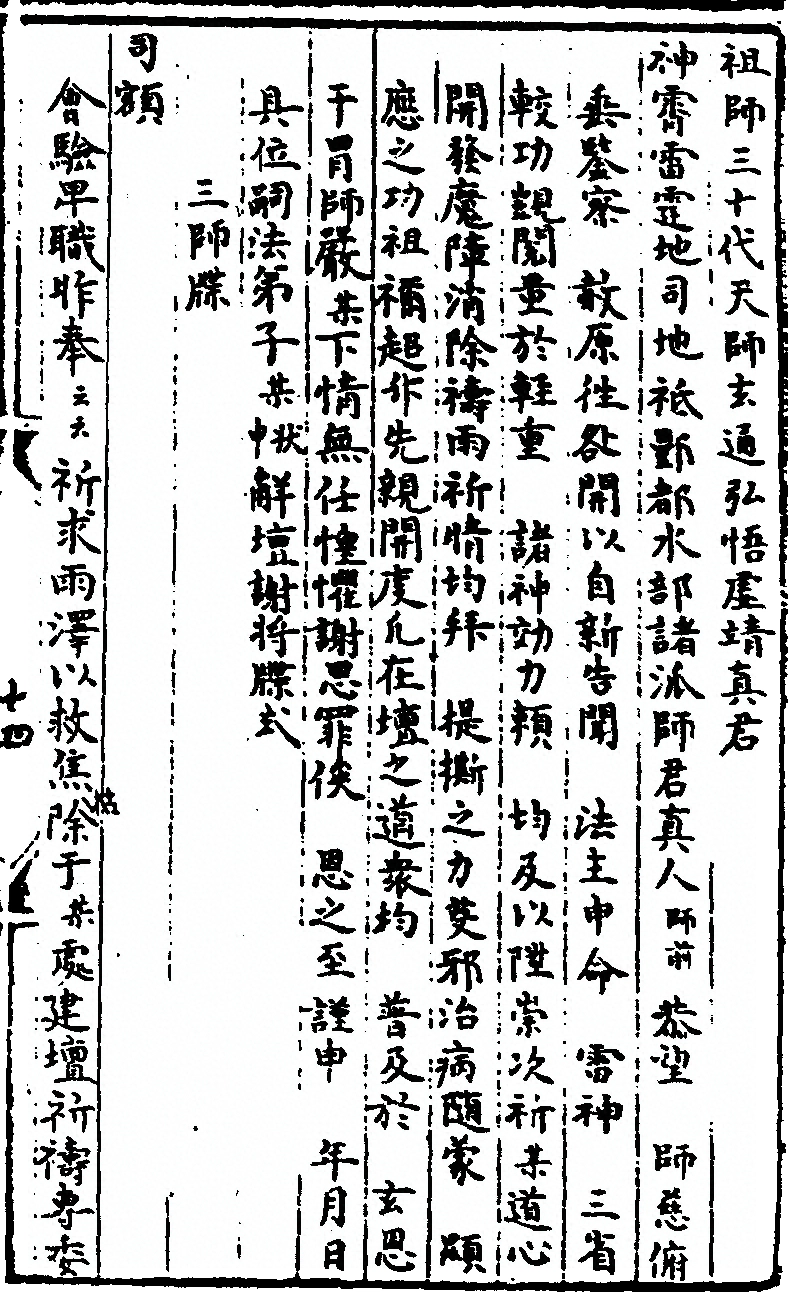 祖師三十代天師玄通弘悟虛靖真君
神霄雷霆地司地祇酆都水部諸派師君真人師前 恭望 師慈俯
垂鑒察 赦原徃𠍴開以自新告聞 法主申命 雷神 三省
較功覲閱量於輕重 諸神効力賴 均及以陞崇次祈某道心
開發魔障消除禱雨祈晴均拜 提撕之力癹邪治病隨蒙 顯
應之功祖禰超仸先親開度凢在壇之道衆均 普及於 玄恩
干冒師嚴某下情無任惶懼謝恩罪俟 恩之至謹申 年月日
具位嗣法第子某狀申觧壇謝將牒式
三師牒
司額
會驗早職昨奉云云祈求雨澤以救焦除于某處建壇祈禱專委
十四